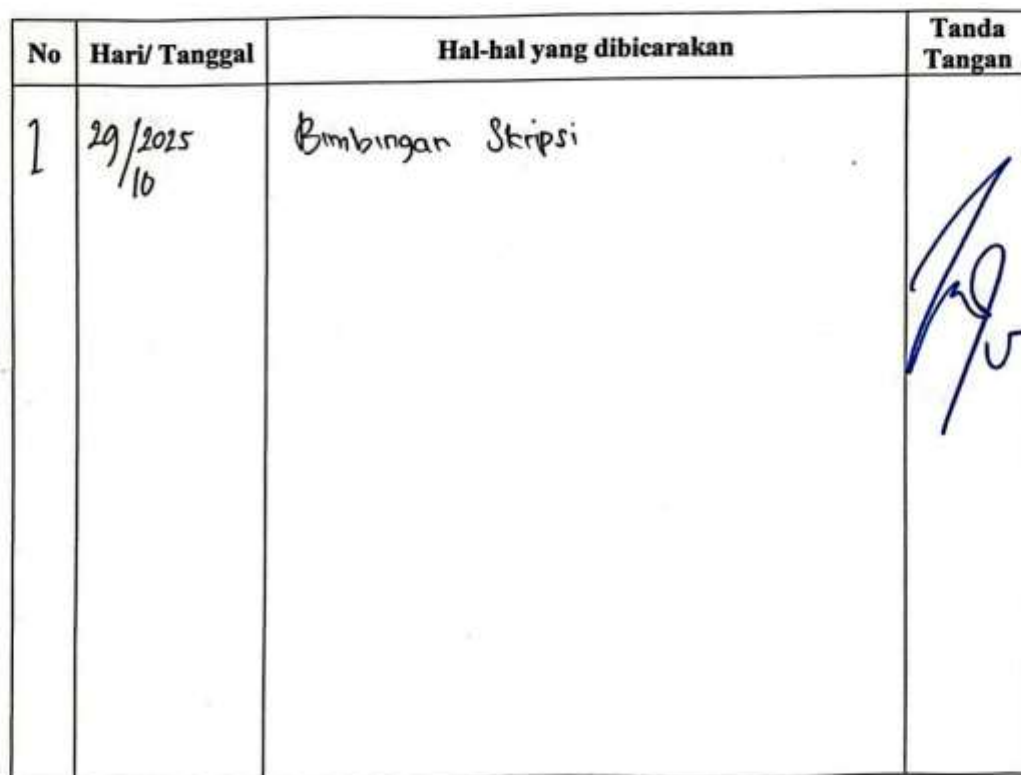 No Hari/ Tanggal Hal-hal yang dibicarakan Tanda Tangan
1 29/2025 Bimbingan Skripsi
/10